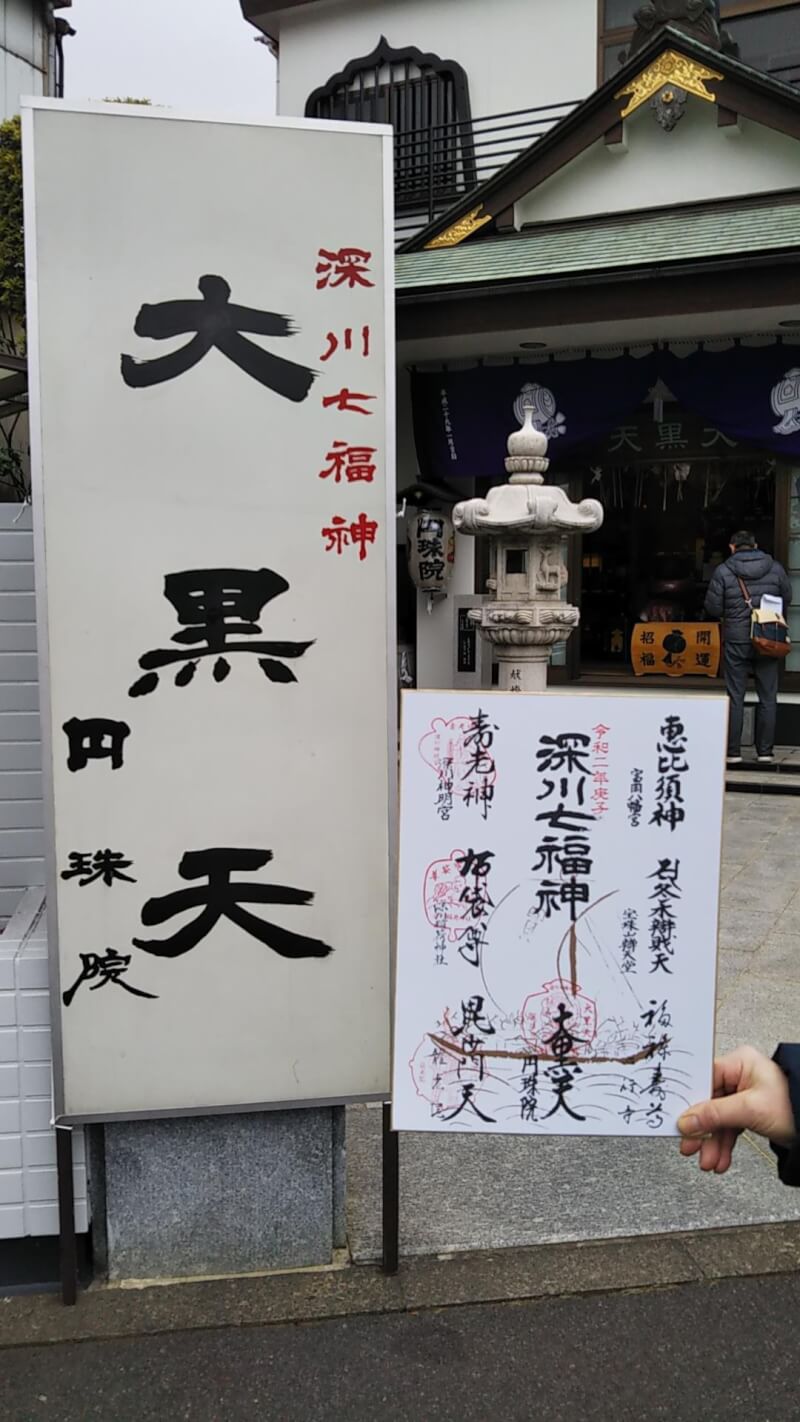 深川七福神
大黒天
円珠院
平成二十九年一月吉日
大黒天
円珠院
開運
招福
献燈
恵比須神
富岡八幡宮
冬木弁財天
宝珠山弁天堂
福禄寿尊
心行寺
令和二年庚子
深川七福神
大黒天
円珠院
寿老神
深川神明宮
布袋尊
深川稲荷神社
毘沙門天
龍光院